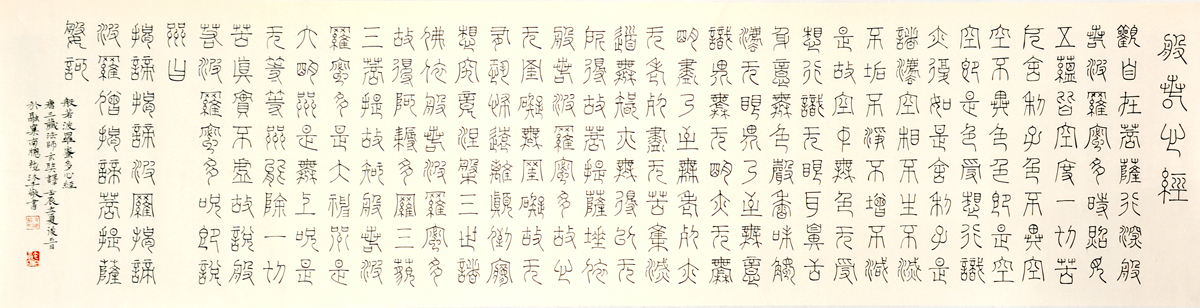 般若心經
觀自在菩薩行深般
若波羅蜜多時照見
五蘊皆空度一切苦
厄舍利子色不異空
空不異色色即是空
空即是色受想行識
亦復如是舍利子是
諸法空相不生不滅
不垢不淨不增不減
是故空中無色无受
想行識无眼耳鼻舌
身意無色聲香味觸
法无眼界乃至無意
識界無无明亦无無
明盡乃至無老死亦
无老死盡无苦集滅
道無智亦無得以无
所得故菩提薩埵依
般若波羅蜜多故心
无罣礙無罣礙故无
有恐怖遠離顛倒夢
想究竟涅槃三世諸
佛依般若波羅蜜多
故得阿耨多羅三藐
三菩提故知般若波
羅蜜多是大神咒是
大明咒是無上咒是
无等等咒能除一切
苦真實不虛故說般
若波羅蜜多咒即說
咒曰
揭諦揭諦波羅揭諦
波羅僧揭諦菩提薩
婆訶
般若波羅蜜多心經
唐三藏法師玄奘譯
敬書